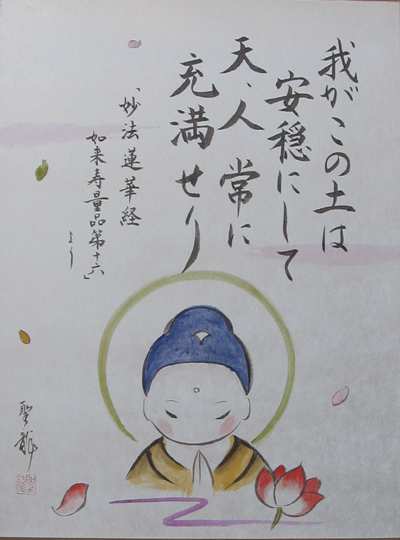 我がこの土は
安穏にして
天、人常に
充満せり
「妙法蓮華経
如来寿量品第十六」
より
聖龍